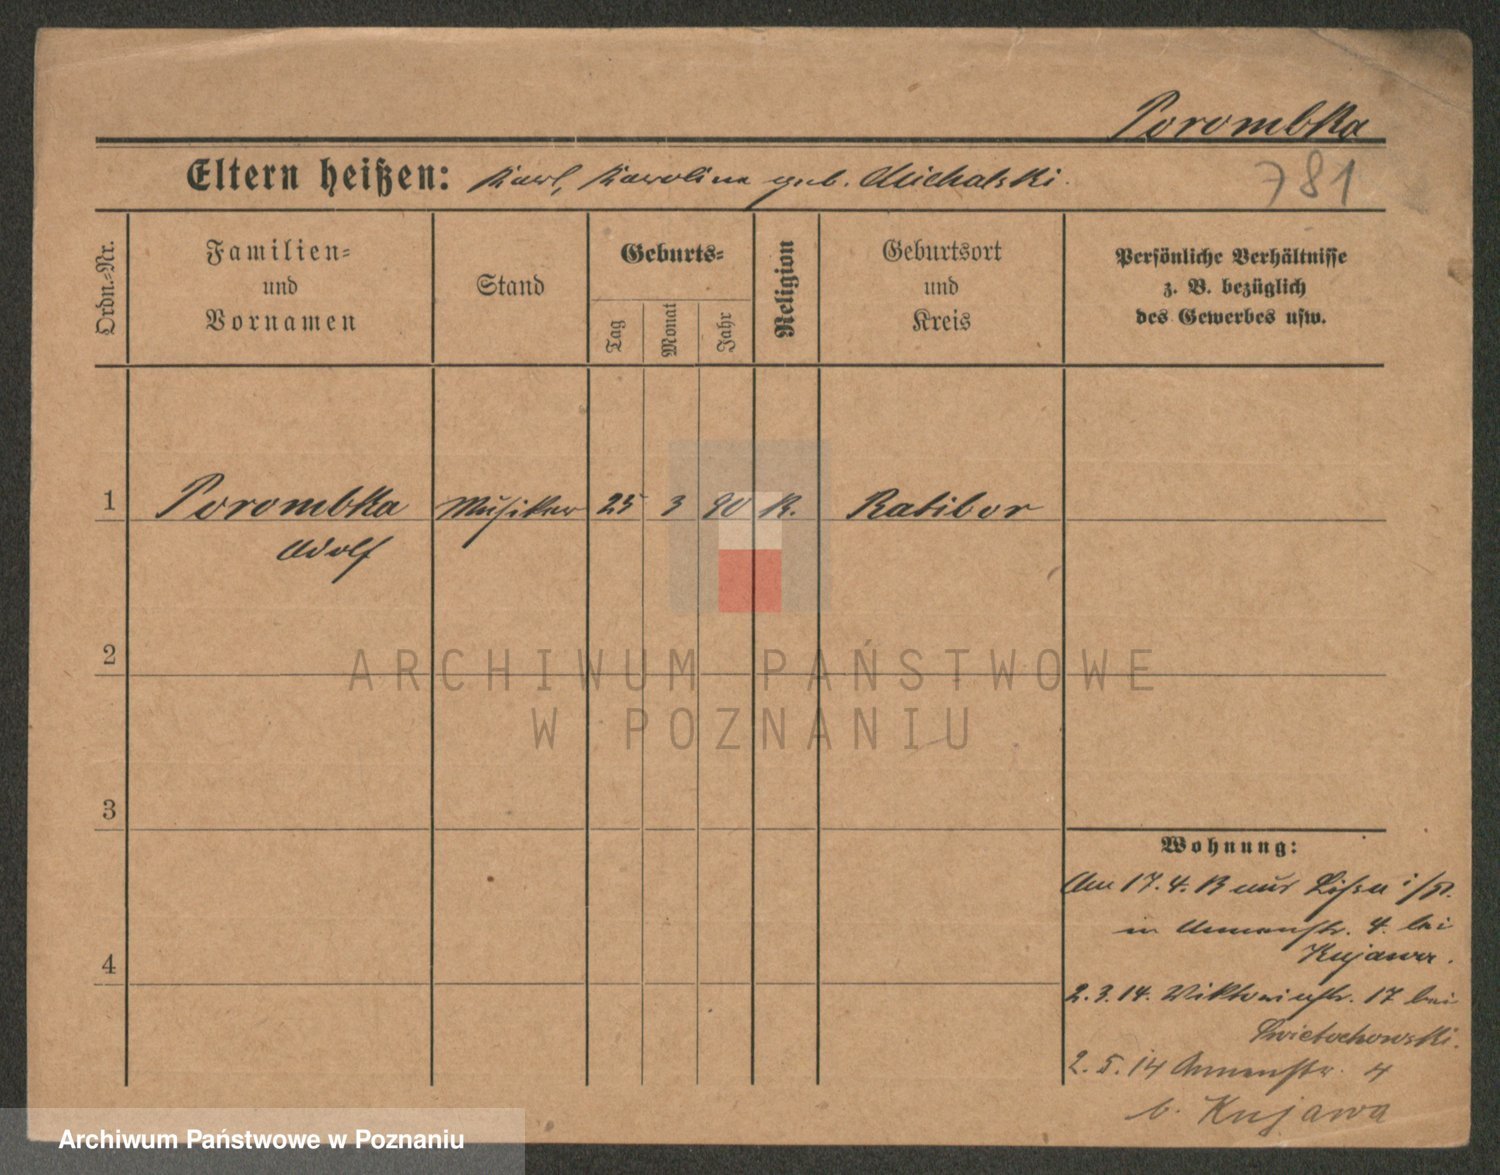 Porombka
Eltern heißen: Karl, Karoline geb. Michalski.
781
Ordn.-Nr.
Familien- und Vornamen
Stand
Geburts-
Tag
Monat
Jahr
Religion
Geburtsort und Kreis
Persönliche Verhältnisse
z. B. bezüglich
des Gewerbes usw.
1 Porombka Musiker 25 3 90 K. Ratibor
Adolf
2
ARCHIWUM PAŃSTWOWE
W POZNANIU
3
Wohnung:
Am 17. 4. 13 aus Lissa i/P.
in Annenstr. 4. bei
Kujawa.
4
2. 3. 14. Viktoriastr. 17 bei
Swietochowski.
2. 5. 14 Annenstr. 4
b. Kujawa
Archiwum Państwowe w Poznaniu